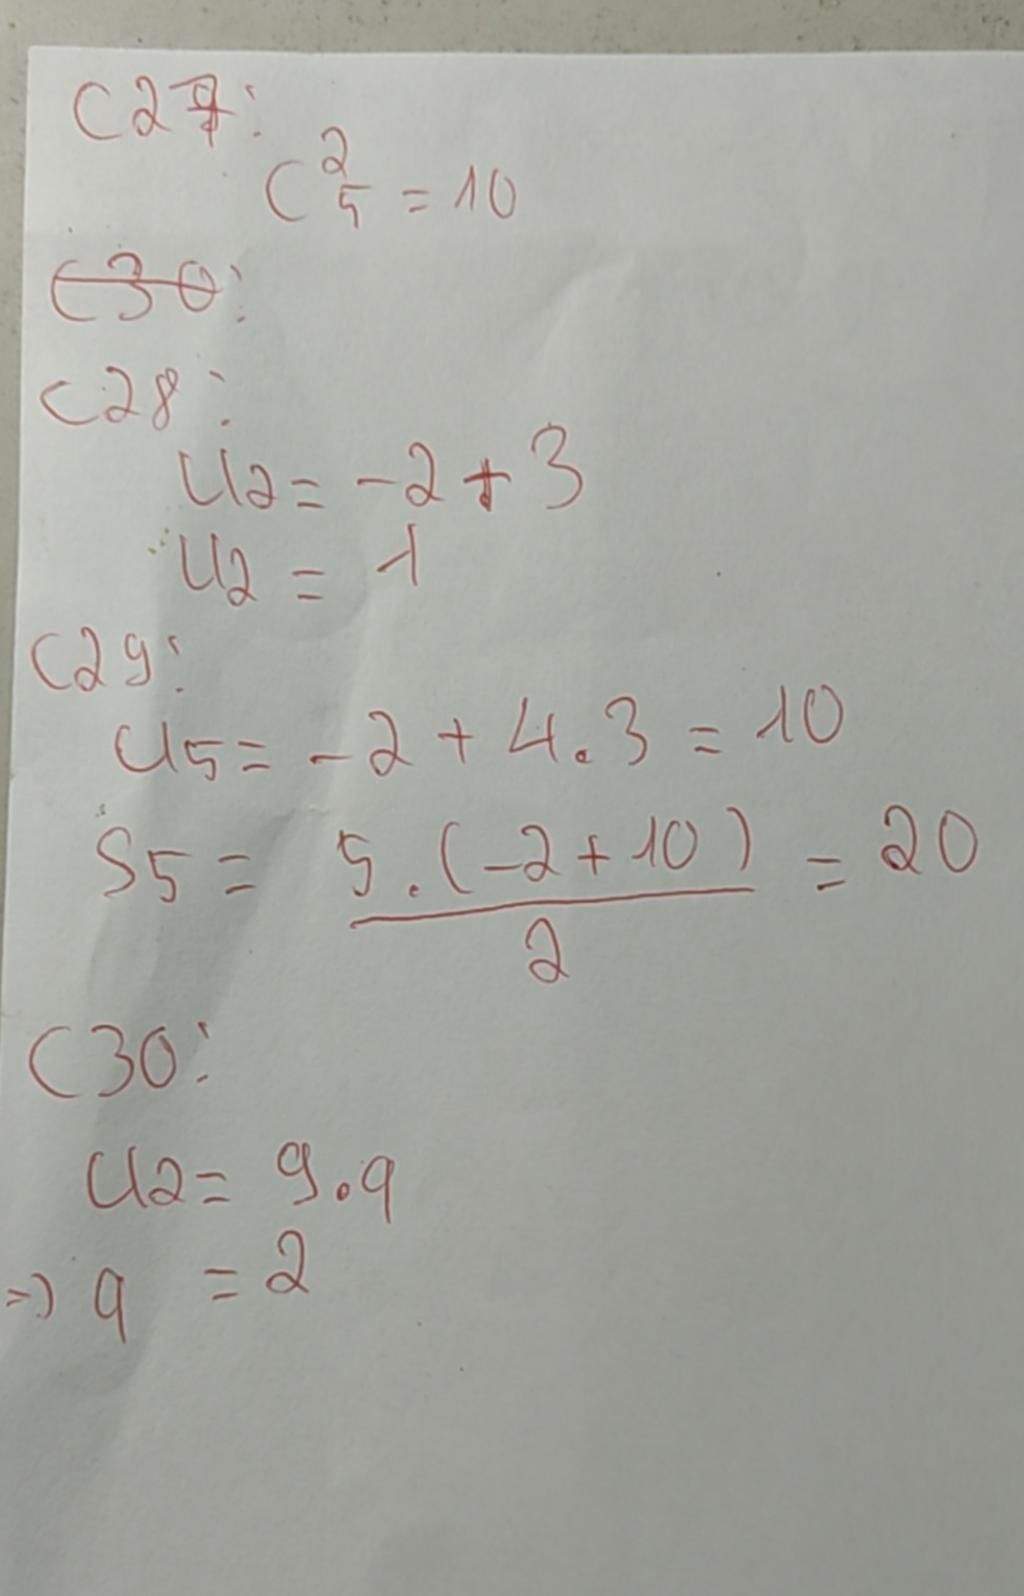 C27:
C²₅ = 10
C30:
C28:
U2 = -2 + 3
U2 = 1
C29:
U5 = -2 + 4.3 = 10
S5 = 5.(-2+10)/2 = 20
C30:
U2 = 9.q
=> q = 2